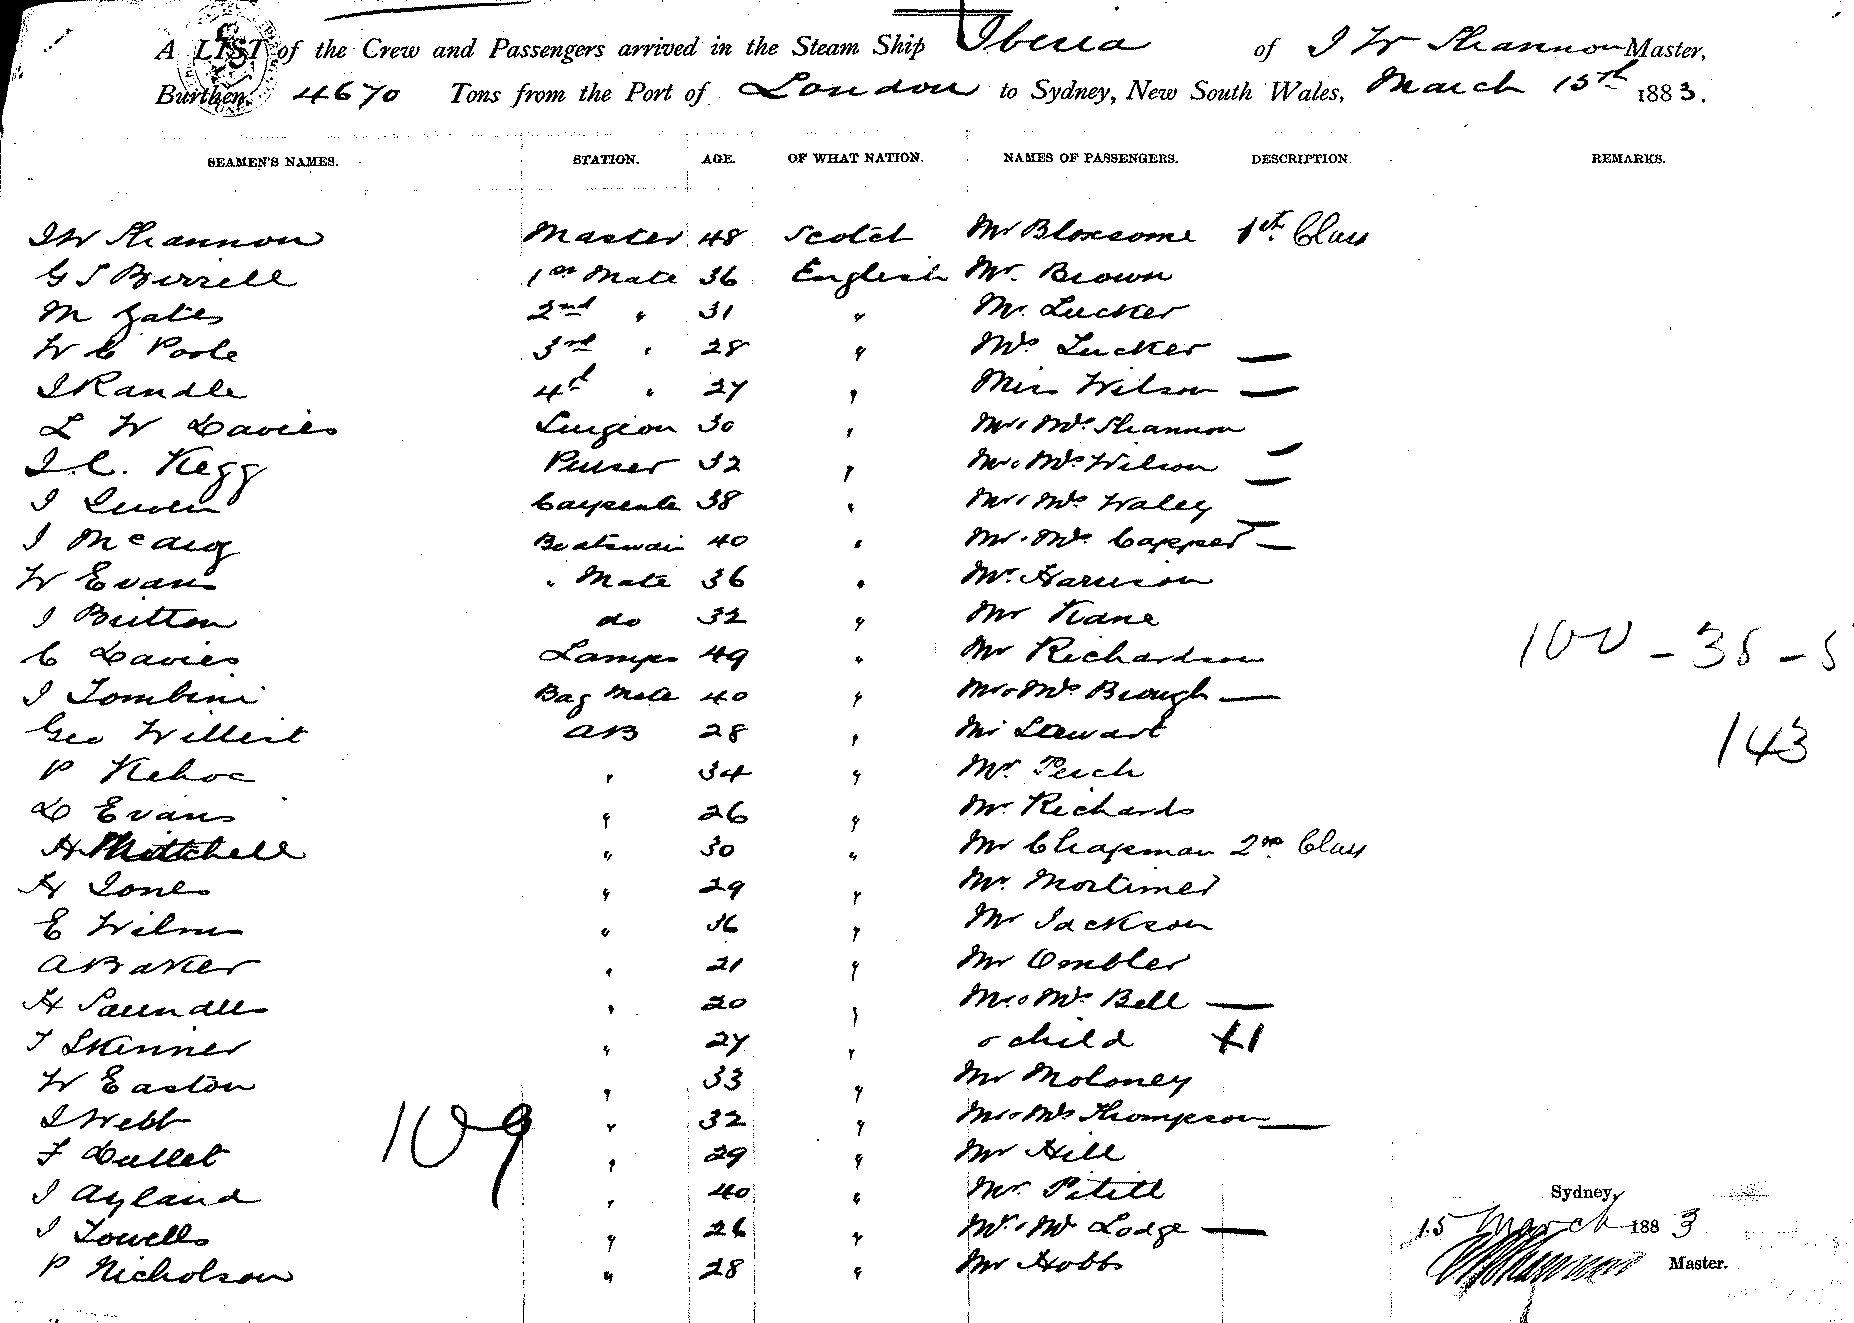 A LIST of the Crew and Passengers arrived in the Steam Ship Iberia of J W Shannon Master,
Burthen, 4670 Tons from the Port of London to Sydney, New South Wales, March 15th 1883.
SEAMEN'S NAMES. STATION. AGE. OF WHAT NATION. NAMES OF PASSENGERS. DESCRIPTION. REMARKS.
J W Shannon Master 48 Scotch Mr Bloxsome 1st Class
G S Birrell 1st Mate 36 English Mr. Brown
M Gates 2nd " 31 " Mr. Lucker
W C Poole 3rd " 28 " Mrs Lucker —
J Randle 4th " 27 " Miss Wilson —
L W Davies Surgeon 30 " Mr & Mrs Shannon
J. C. Kegg Purser 32 " Mr & Mrs Wilson —
J 38 " Mr & Mrs Waley —
J McCaig 40 " Mr & Mrs Capper —
W Evans " Mate 36 " Mr. Harrison
J Britton do 32 " Mr Kane
C Davies Lamps 49 " Mr Richardson
J Tombini Bag Mate 40 " Mr & Mrs Brough —
Geo AB 28 " Mr Stewart
P Kehoe " 34 " Mr.
D Evans " 26 " Mr. Richards
H Mitchell " 30 " Mr Chapman 2nd Class
H Jones " 29 " Mr. Mortimer
E " 36 " Mr Jackson
A Baker " 21 " Mr
H " 20 " Mr & Mrs Bell —
T Skinner " 27 " & child +1
W Easton " 33 " Mr Moloney
J Webb " 32 " Mr & Mrs Thompson —
F " 29 " Mr Hill
J Ayland " 40 " Mr.
J Towells " 26 " Mr & Mrs Lodge —
P Nicholson " 28 " Mr Hobbs
109
143
Sydney,
15 March 1883
Master.